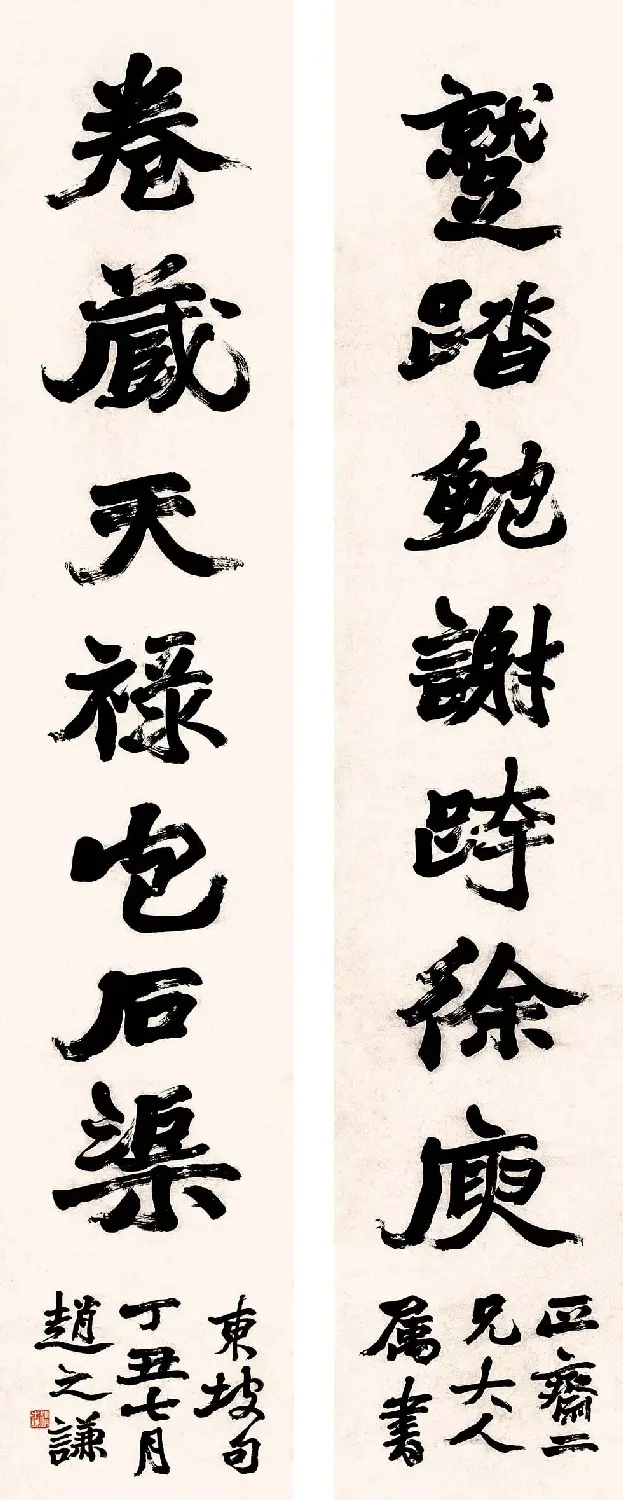 蹵踏鮑謝跨徐庾
正齋二
兄大人
属書
卷藏天禄包石渠
東坡句
丁丑七月
趙之謙